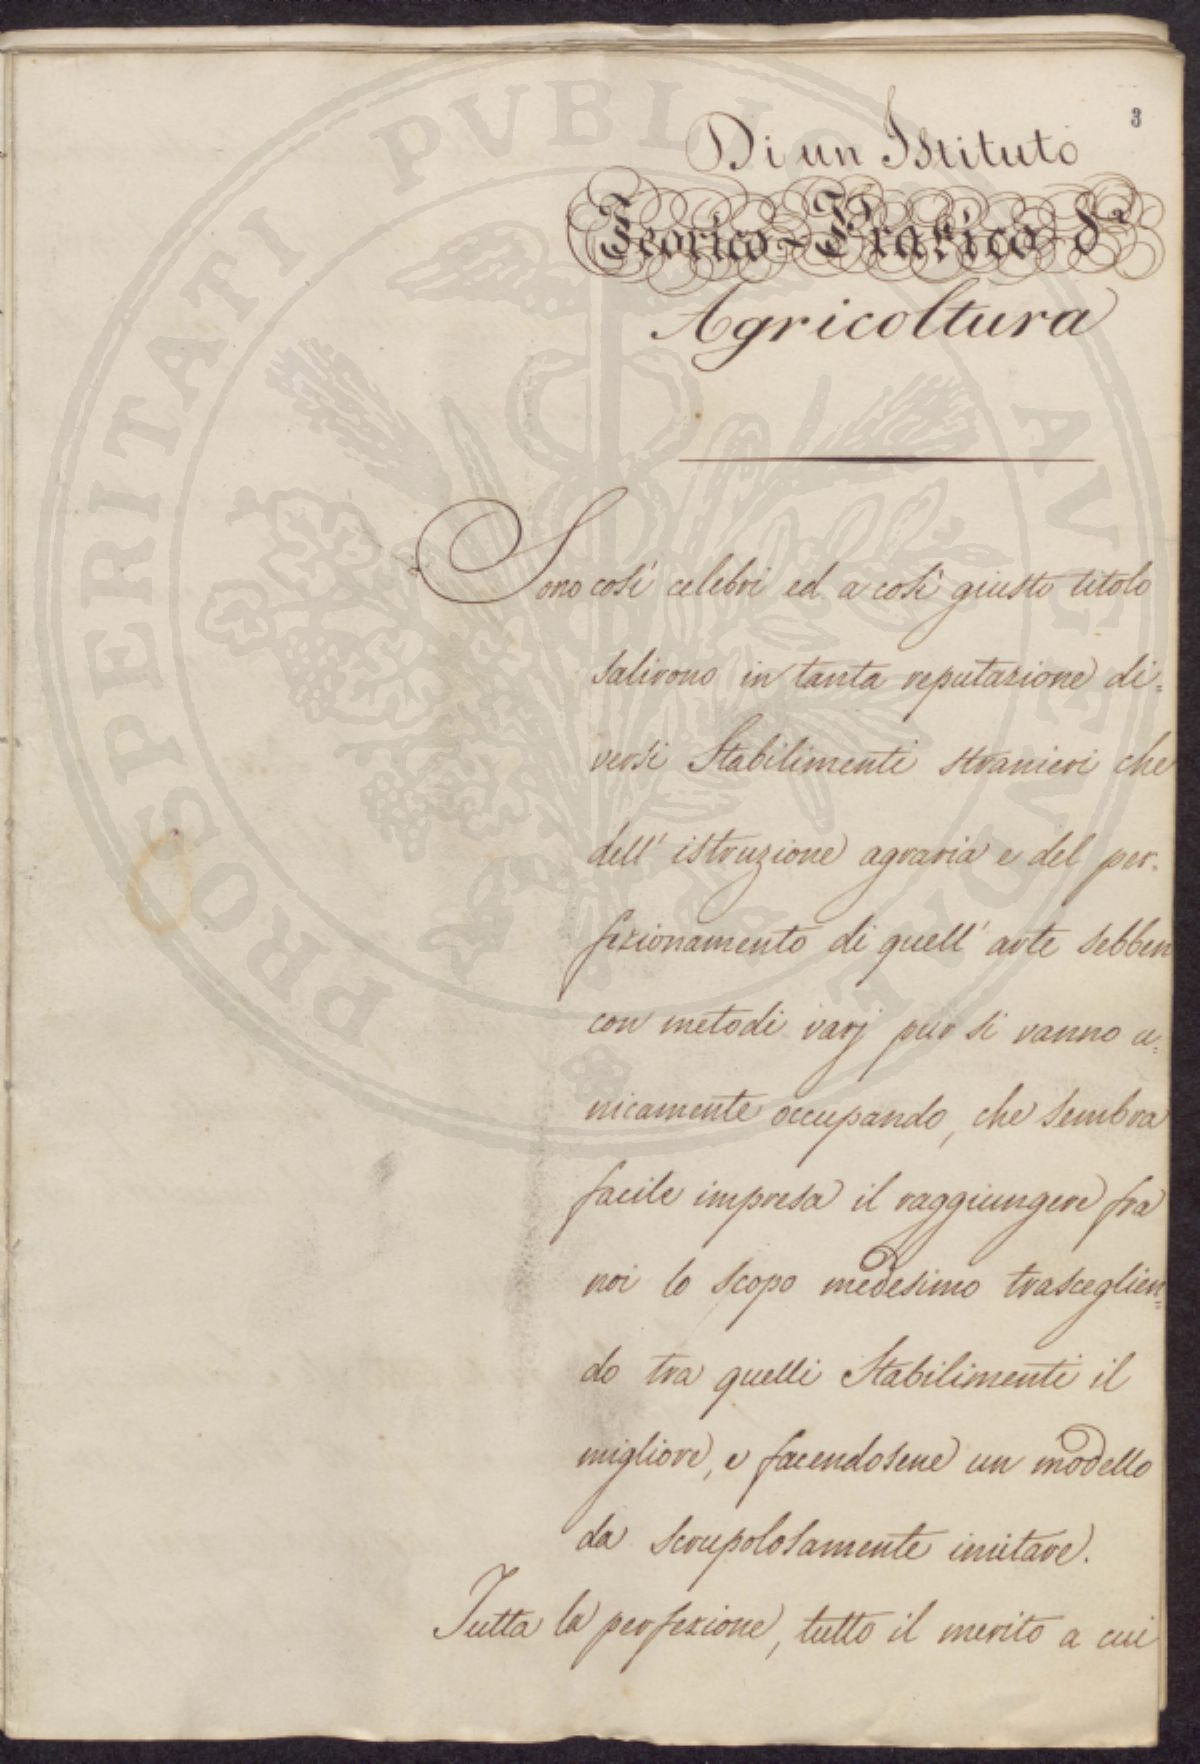 3
Di un Istituto
Teorico-Pratico d'
Agricoltura
Sono così celebri ed a così giusto titolo
salirono in tanta reputazione di=
versi Stabilimenti stranieri che
dell' istruzione agraria e del per=
fezionamento di quell' arte sebben
con metodi varj pur si vanno u=
nicamente occupando, che sembra
facile impresa il raggiungere fra
noi lo scopo medesimo trasceglien=
do tra quelli Stabilimenti il
migliore, e facendosene un modello
da scrupolosamente imitare.
Tutta la perfezione, tutto il merito a cui
PROSPERITATI PVBLICAE AVGENDAE